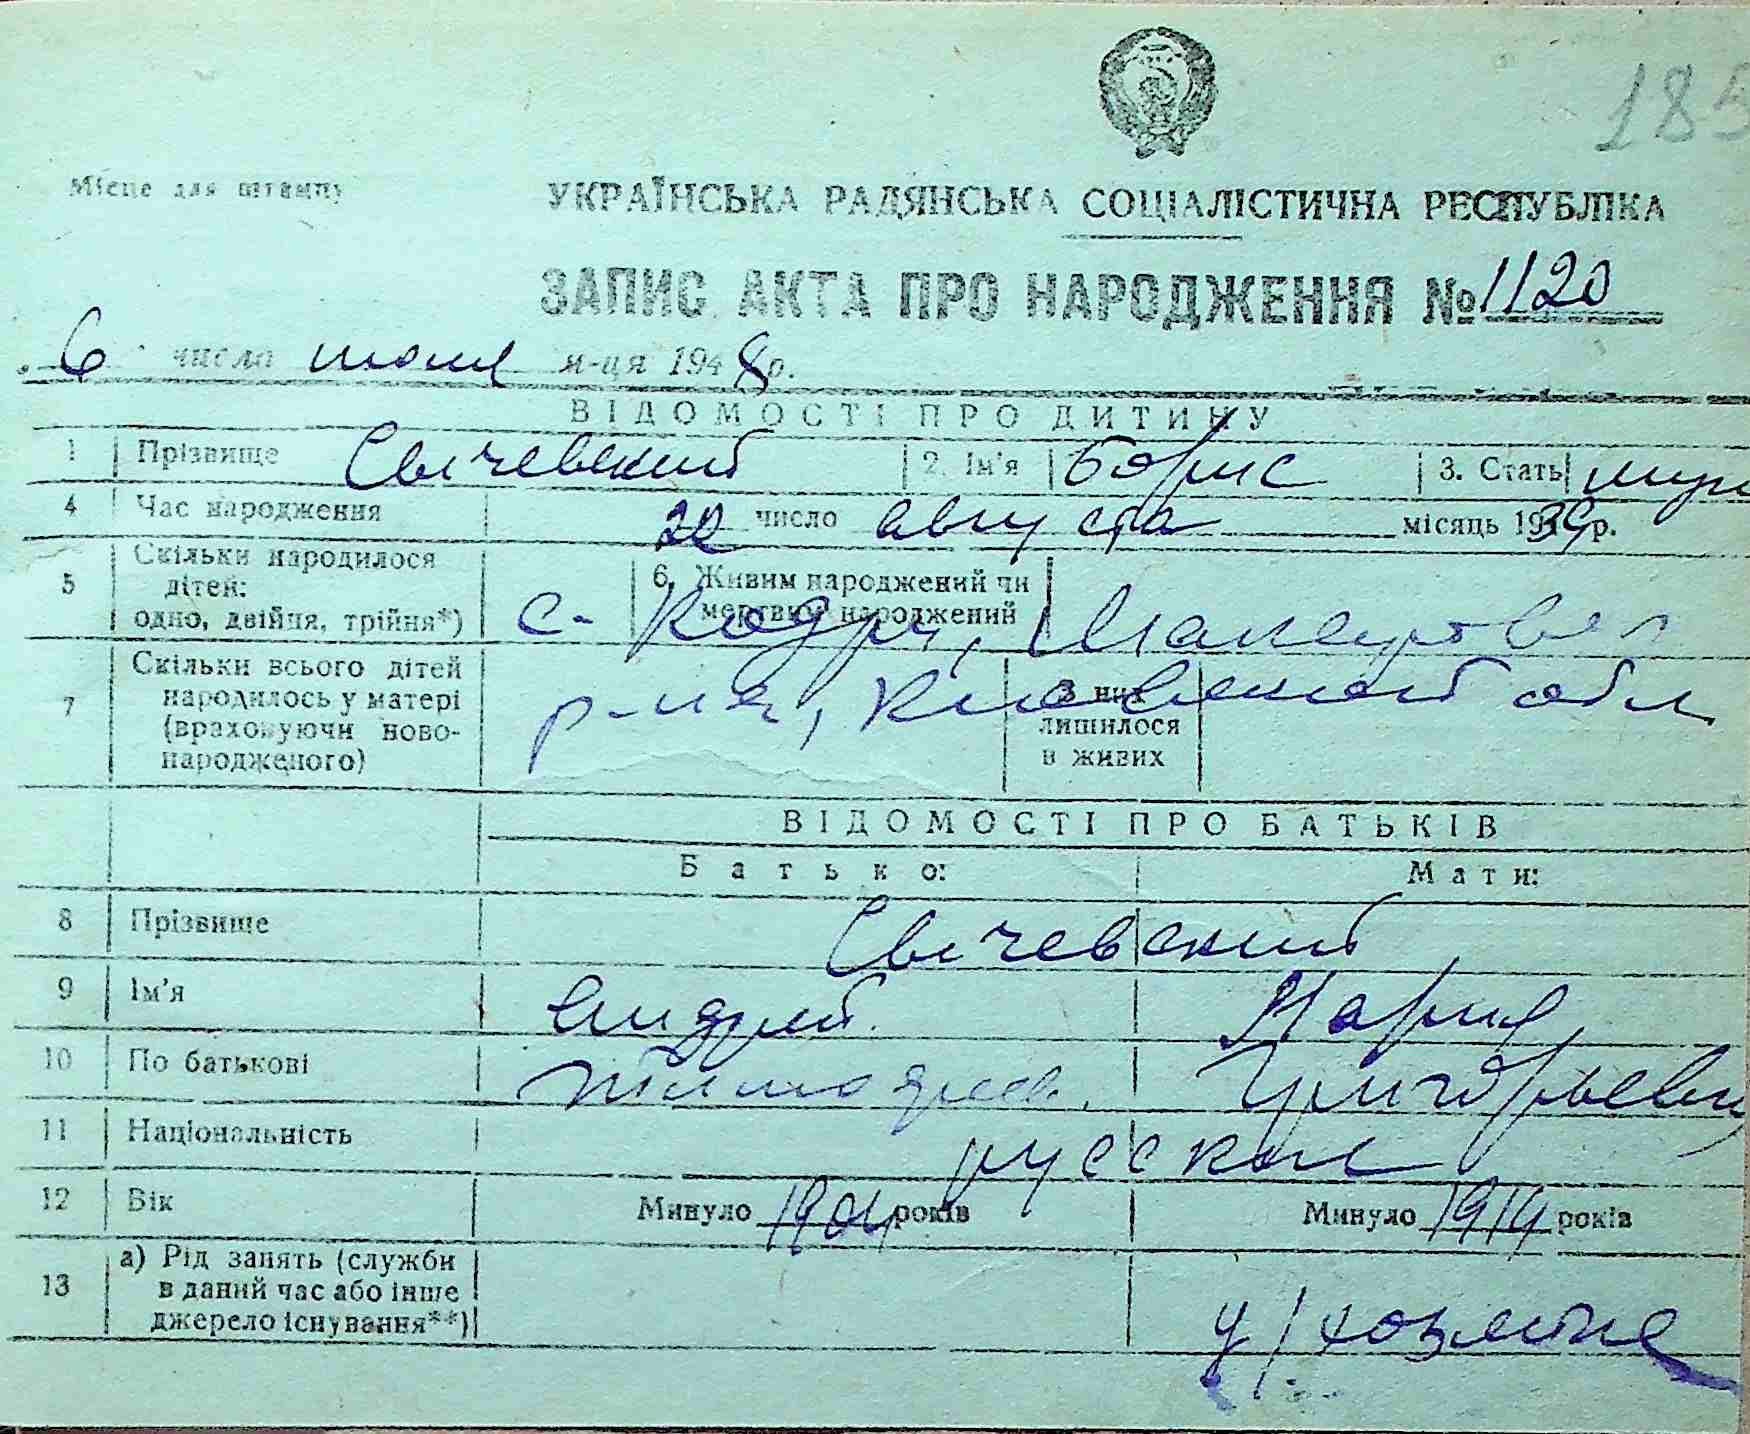 185
Місце для штампу
УКРАЇНСЬКА РАДЯНСЬКА СОЦІАЛІСТИЧНА РЕСПУБЛІКА
ЗАПИС АКТА ПРО НАРОДЖЕННЯ № 1120
6 числа июля м-ця 1948 р.
ВІДОМОСТІ ПРО ДИТИНУ
1 Прізвище Сычевский 2. Ім'я Борис 3. Стать муж
4 Час народження 20 число августа місяць 1939 р.
5 Скільки народилося дітей: одно, двійня, трійня*) 6. Живим народжений чи мертвим народжений
с. Кодры, Макаровск
7 Скільки всього дітей народилось у матері (враховуючи новонародженого) З них лишилося в живих
р-на, Киевской обл
ВІДОМОСТІ ПРО БАТЬКІВ
Батько: Мати:
8 Прізвище Сычевский
9 Ім'я Андрей Мария
10 По батькові Григорьевн
11 Національність русские
12 Вік Минуло 1904 років Минуло 1914 років
13 а) Рід занять (служби в даний час або інше джерело існування**)
д/хозяйка